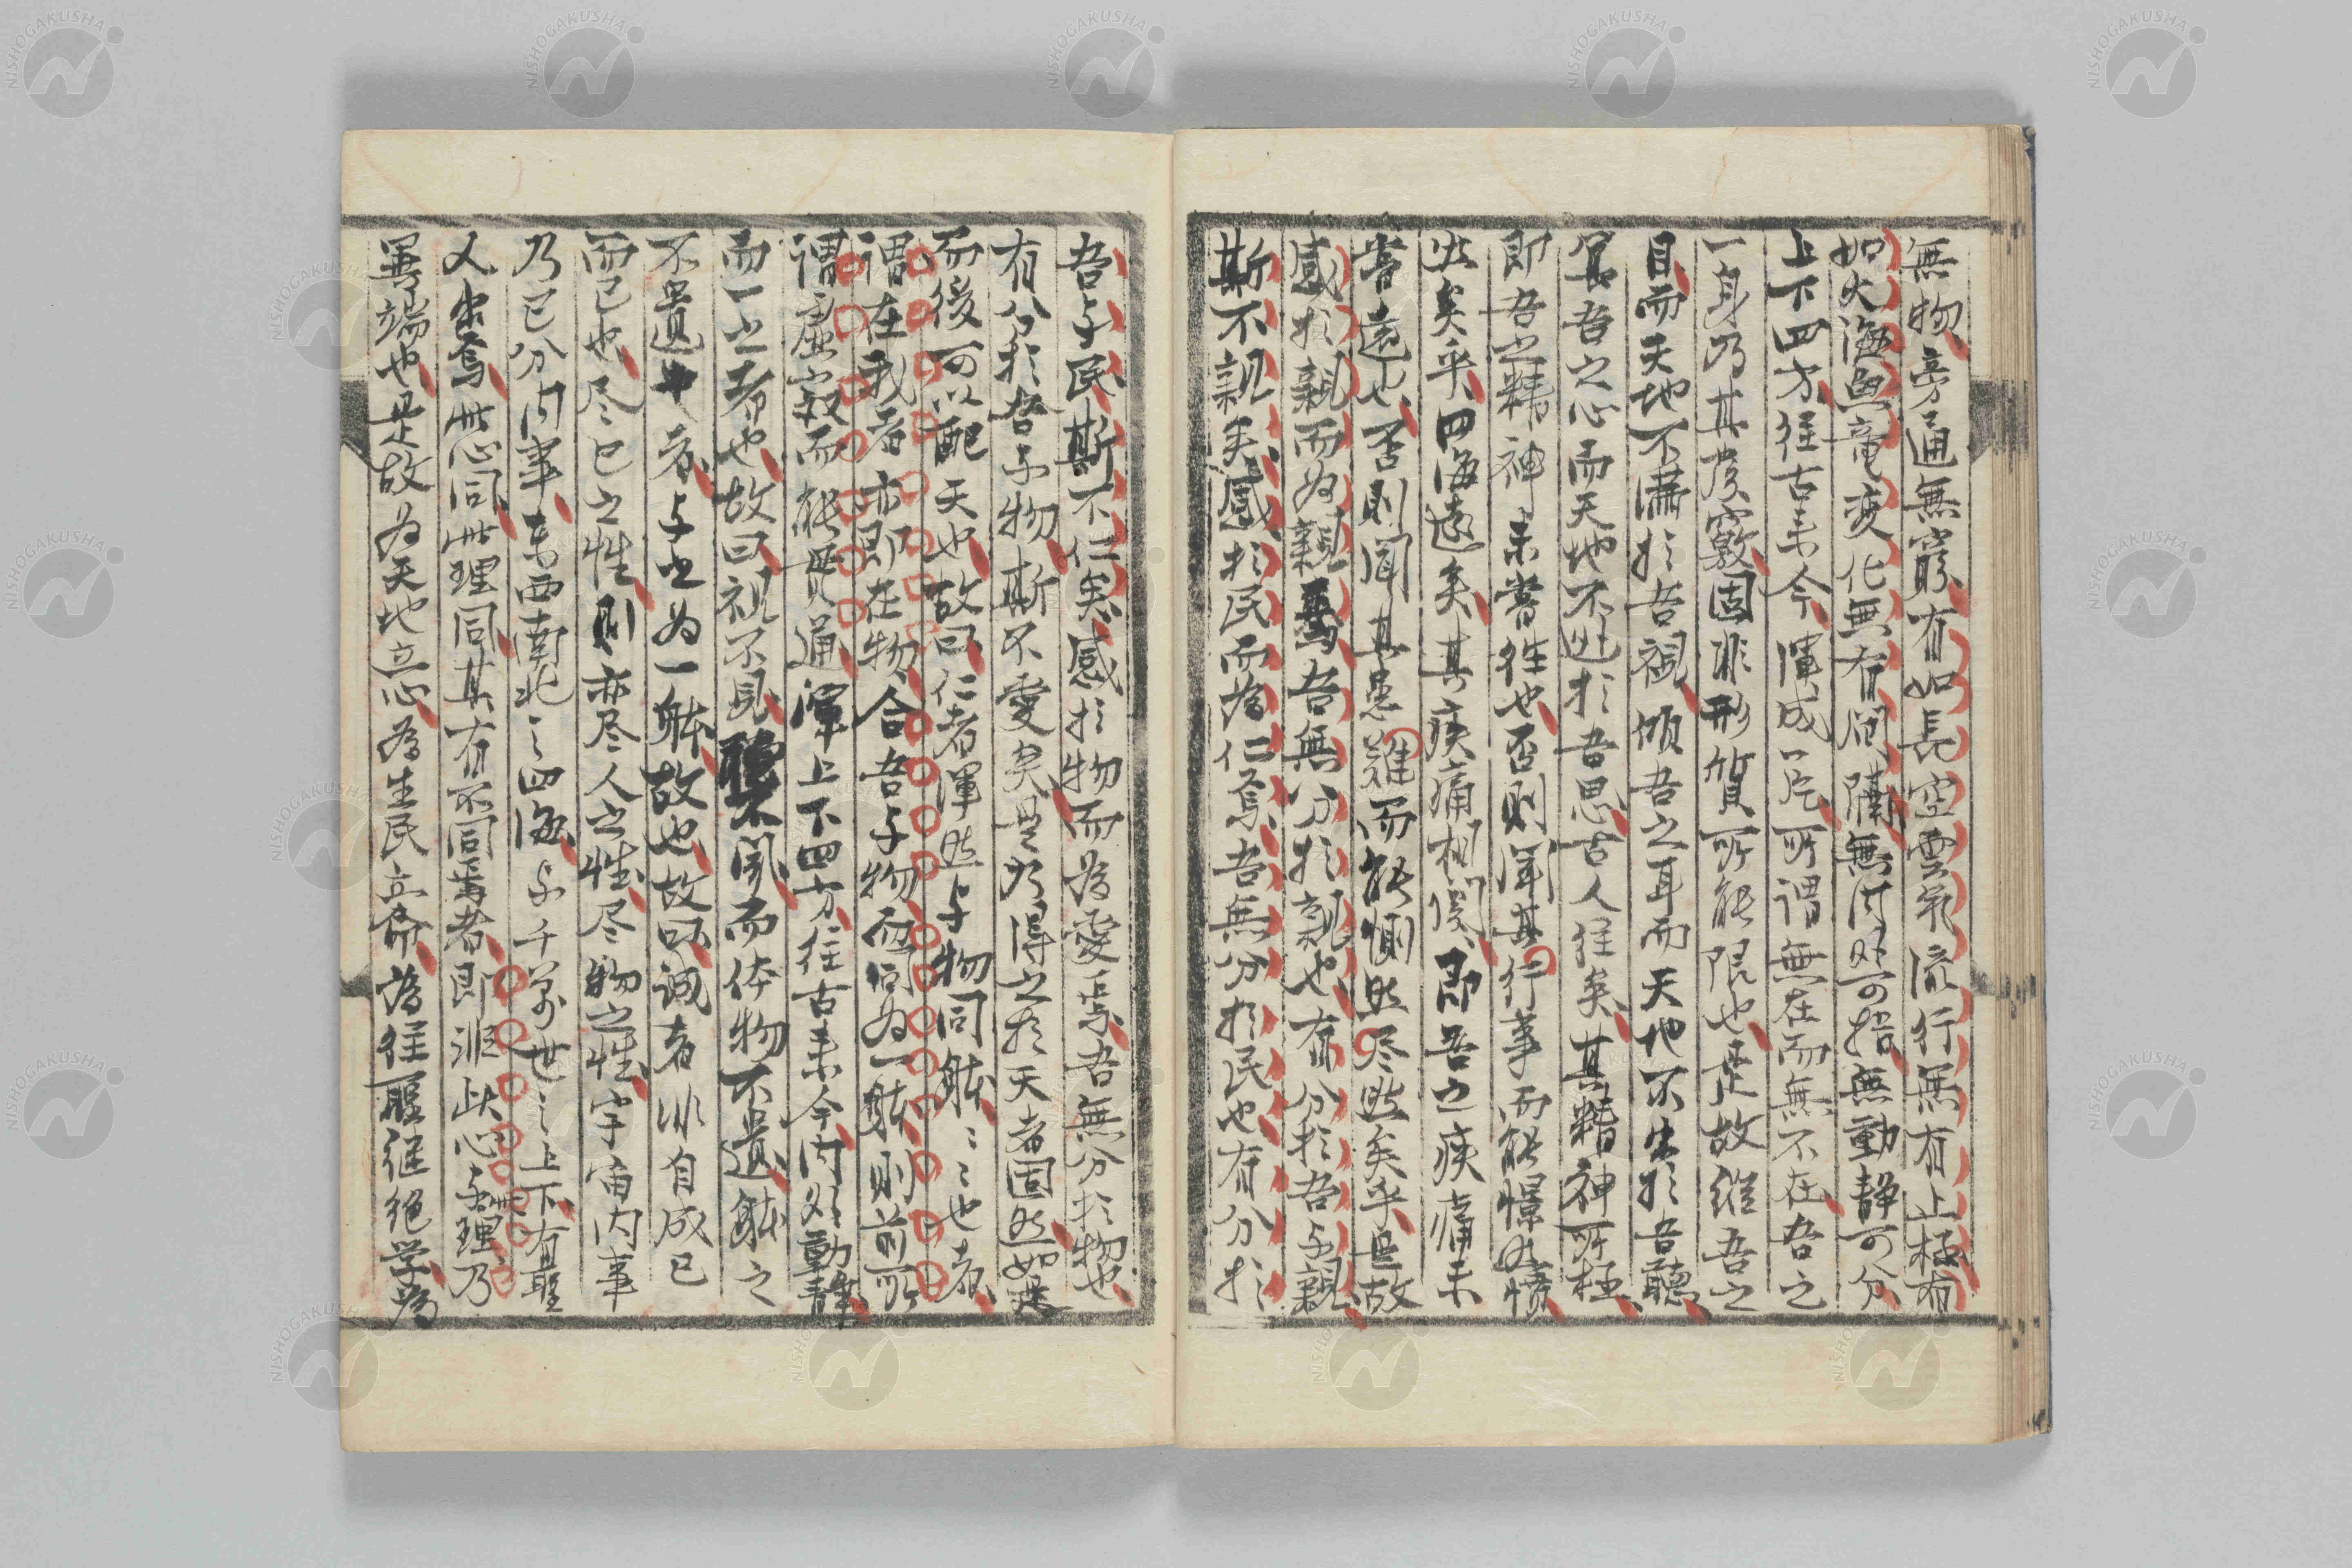 無物旁通無窮有如長空雲氣流行無有止極有
如大海魚竜変化無有間隔無内外可指無動静可分
上下四方往古来今渾成一片所謂無在而無不在吾之
一身乃其発竅固非形質所能限也是故縦吾之
目而天地不満於吾視傾吾之耳而天地不出於吾聴
冥吾之心而天地不逃於吾思古人往矣其精神所極
即吾之精神未嘗往也否則聞其行事而能憬然憤
然矣乎四海遠矣其疾痛相関即吾之疾痛未
嘗遠也否則聞其患難而能惻然尽然矣乎是故
感於親而為親焉吾無分於親也有分於吾与親
斯不親矣感於民而為仁焉吾無分於民也有分於
吾与民斯不仁矣感於物而為愛焉吾無分於物也
有分於吾与物斯不愛矣是乃得之於天者固然如是
而後可以配天也故曰仁者渾然与物同躰〻〻也者
謂在我者亦即在物合吾与物而同為一躰則前所
謂虚寂而能貫通渾上下四方往古来今内外動静
而一之者也故曰視不見聴不聞而体物不遺躰之
不遺也者与之為一躰故也故曰誠者非自成己
而已也尽己之性則亦尽人之性尽物之性宇宙内事
乃己分内事東西南北之四海与千万世之上下有聖
人出焉此心同此理同其有不同焉者即非此心与此理乃
異端也是故為天地立心為生民立命為往聖継絶学為